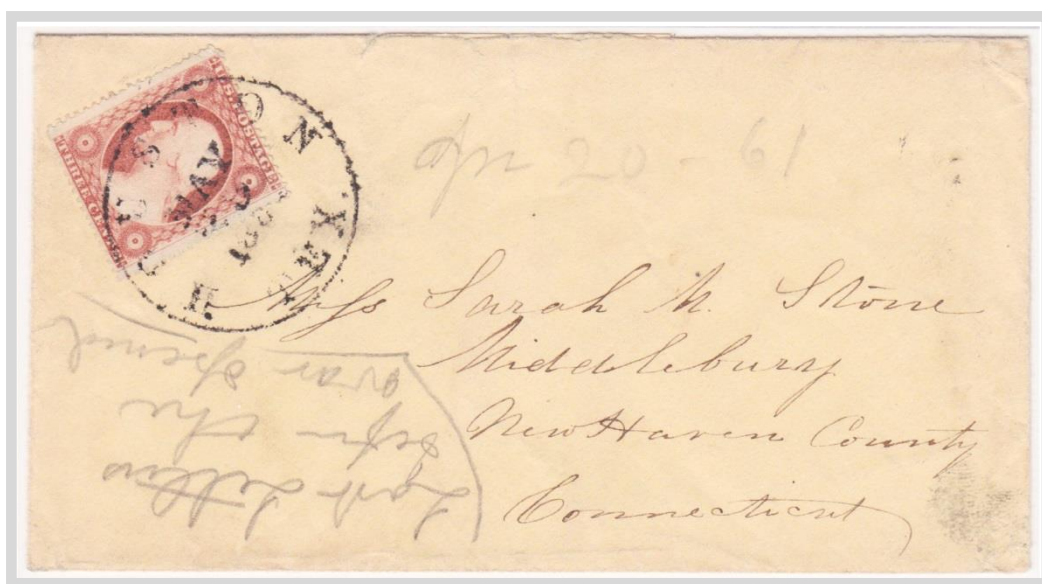 HOUSTON TEX.
MAY
THREE CENTS
U.S. POSTAGE
Apr 20 - 61
Miss Sarah M. Stone
Middlebury
New Haven County
Connecticut
Last Letter
before the
war opened